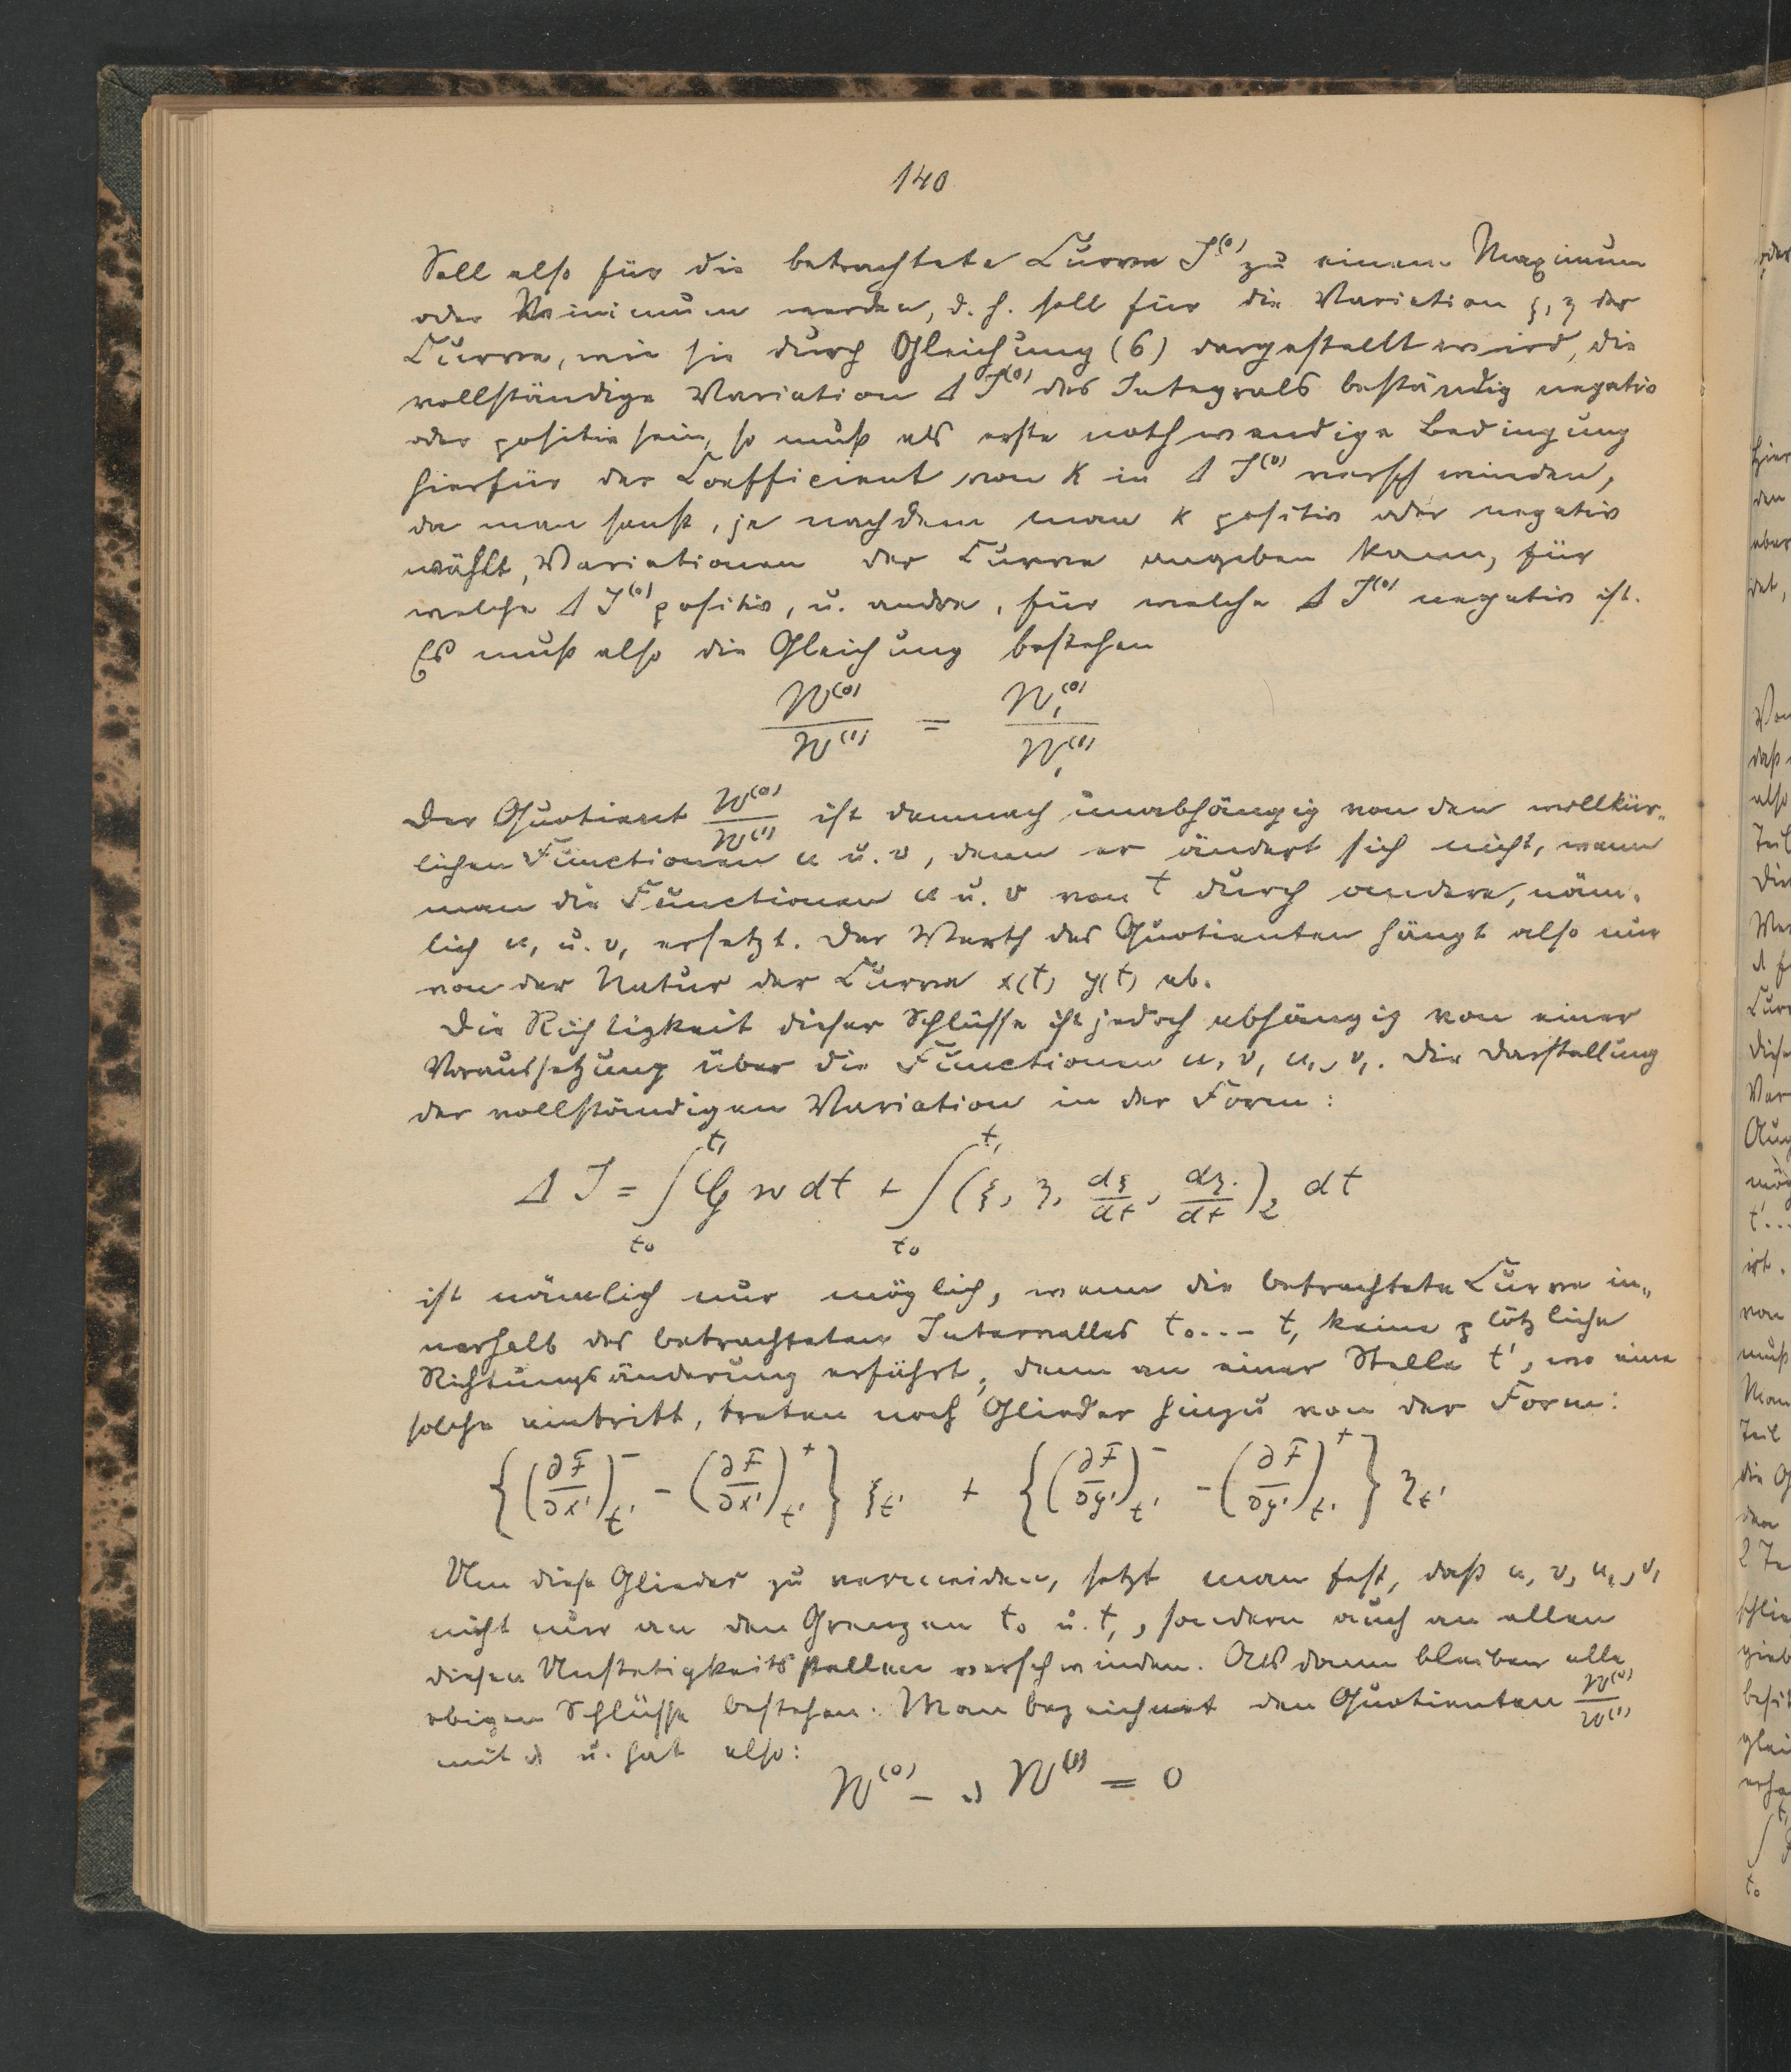 140
Soll also für die betrachtete Curve J⁽⁰⁾ zu einem Maximum
oder Minimum werden, d. h. soll für die Variation ξ, η der
Curve, wie sie durch Gleichung (6) dargestellt wird, die
vollständige Variation Δ J⁽⁰⁾ des Integrals beständig negativ
oder positiv sein, so muß als erste nothwendige Bedingung
hierfür der Coefficient von k in Δ J⁽⁰⁾ verschwinden,
da man sonst, je nachdem man k positiv oder negativ
wählt, Variationen der Curve angeben kann, für
welche Δ J⁽⁰⁾ positiv, u. andre, für welche Δ J⁽⁰⁾ negativ ist.
Es muß also die Gleichung bestehen
W⁽⁰⁾/W⁽¹⁾ = W₁⁽⁰⁾/W₁⁽¹⁾
Der Quotient W⁽⁰⁾/W⁽¹⁾ ist demnach unabhängig von den willkür„
lichen Functionen u u. v, denn er ändert sich nicht, wenn
man die Functionen u u. v von t durch andere, näm„
lich u₁ u. v₁ ersetzt. Der Werth des Quotienten hängt also nur
von der Natur der Curve x(t) y(t) ab.
Die Richtigkeit dieser Schlüsse ist jedoch abhängig von einer
Voraussetzung über die Functionen u, v, u₁, v₁. Die Darstellung
der vollständigen Variation in der Form:
Δ J = ∫_{t₀}^{t₁} G w dt + ∫_{t₀}^{t₁} (ξ, η, dξ/dt, dη/dt)₂ dt
ist nämlich nur möglich, wenn die betrachtete Curve in„
nerhalb des betrachteten Intervalles t₀...- t₁ keine plötzliche
Richtungsänderung erfährt, denn an einer Stelle t', wo eine
solche eintritt, treten noch Glieder hinzu von der Form:
{(∂F/∂x')⁻_{t'} - (∂F/∂x')⁺_{t'}} ξ_{t'} + {(∂F/∂y')⁻_{t'} - (∂F/∂y')⁺_{t'}} η_{t'}
Um diese Glieder zu vermeiden, setzt man fest, daß u, v, u₁, v₁
nicht nur an den Grenzen t₀ u. t₁, sondern auch an allen
diesen Unstetigkeitsstellen verschwinden. Alsdann bleiben alle
obigen Schlüsse bestehen. Man bezeichnet den Quotienten W⁽⁰⁾/W⁽¹⁾
mit λ u. hat also:
W⁽⁰⁾ - λ W⁽¹⁾ = 0